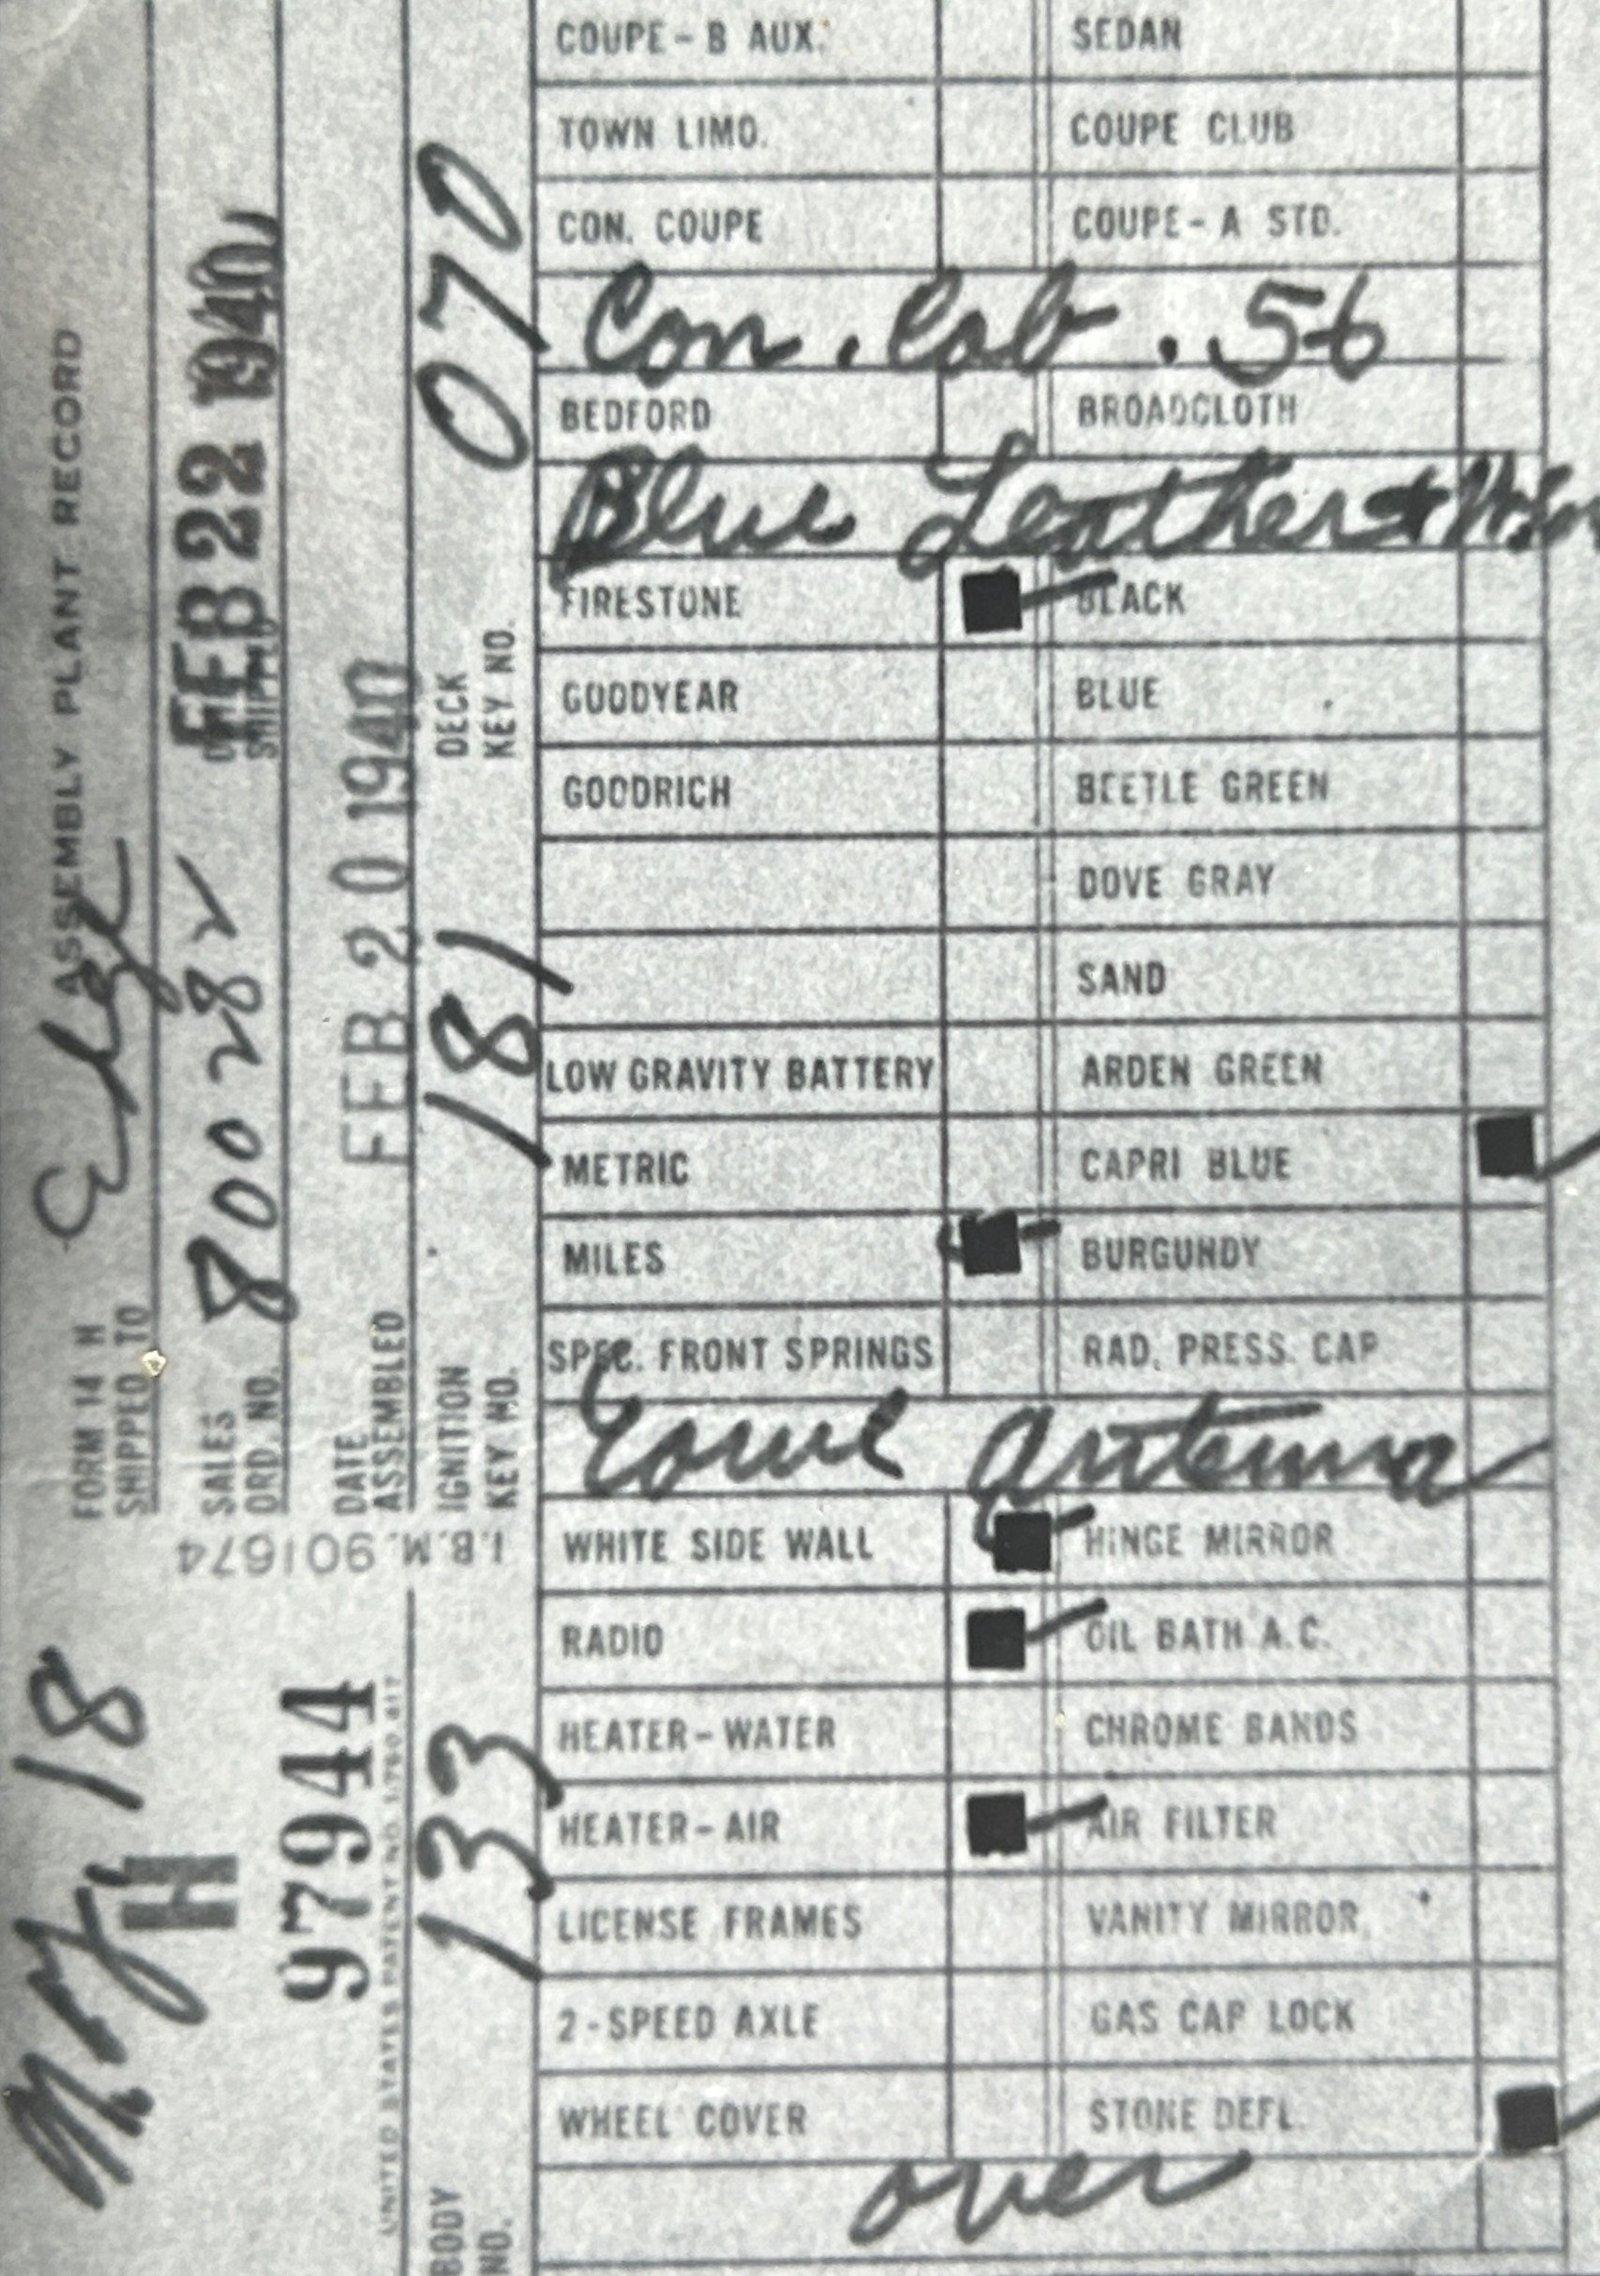 FORM 14 H
ASSEMBLY PLANT RECORD
SHIPPED TO
SALES ORD. NO.
800282
FEB 22 1940
DATE ASSEMBLED
FEB 20 1940
IGNITION KEY NO.
181
DECK KEY NO.
070
I.B.M. 901674
18
H
97944
UNITED STATES PATENT NO. 1,780,817
BODY NO.
133
COUPE - B AUX. SEDAN
TOWN LIMO. COUPE CLUB
CON. COUPE COUPE - A STD.
Con. Cab. 56
BEDFORD BROADCLOTH
Blue Leather
FIRESTONE BLACK
GOODYEAR BLUE
GOODRICH BEETLE GREEN
DOVE GRAY
SAND
LOW GRAVITY BATTERY ARDEN GREEN
METRIC CAPRI BLUE
MILES BURGUNDY
SPEC. FRONT SPRINGS RAD. PRESS. CAP
Cowl Antenna
WHITE SIDE WALL HINGE MIRROR
RADIO OIL BATH A.C.
HEATER - WATER CHROME BANDS
HEATER - AIR AIR FILTER
LICENSE FRAMES VANITY MIRROR
2 - SPEED AXLE GAS CAP LOCK
WHEEL COVER STONE DEFL.
over